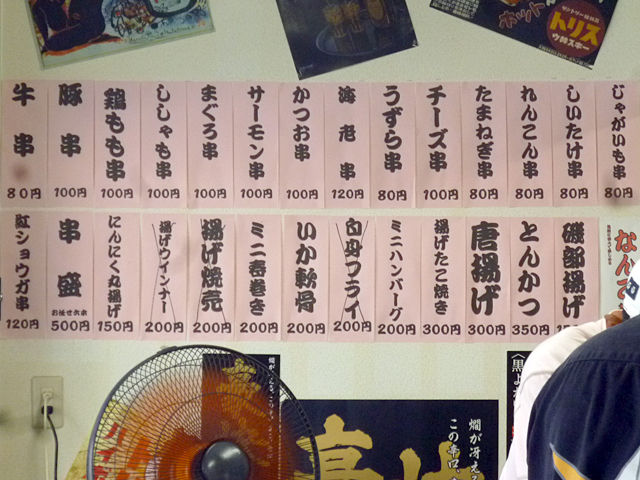 サントリー
トリス
ウ井スキー
牛串 80円
豚串 100円
鶏もも串 100円
ししゃも串 100円
まぐろ串 100円
サーモン串 100円
かつお串 100円
海老串 120円
うずら串 80円
チーズ串 100円
たまねぎ串 80円
れんこん串 80円
しいたけ串 80円
じゃがいも串 80円
紅ショウガ串 120円
串盛 お任せ六本 500円
にんにく丸揚げ 150円
揚げウインナー 200円
揚げ焼売 200円
ミニ春巻き 200円
いか軟骨 200円
白身フライ 200円
ミニハンバーグ 200円
揚げたこ焼き 300円
唐揚げ 300円
とんかつ 350円
磯部揚げ
なんで
燗が冴える
この辛口